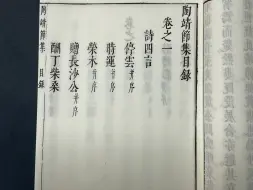 陶靖節集目錄
卷之一
詩四言
停雲并序
時運并序
榮木并序
贈長沙公并序
酬丁柴桑
陶靖節集 目錄